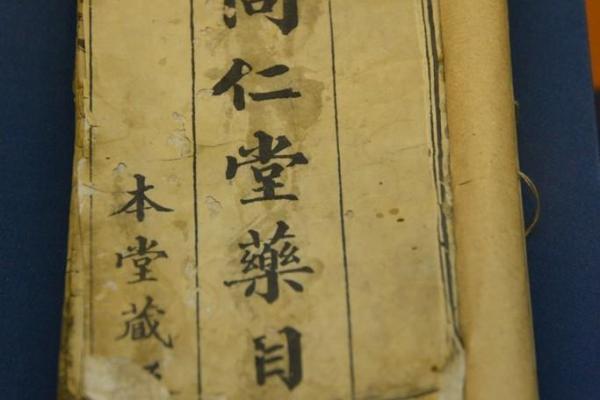 同仁堂藥目
本堂藏